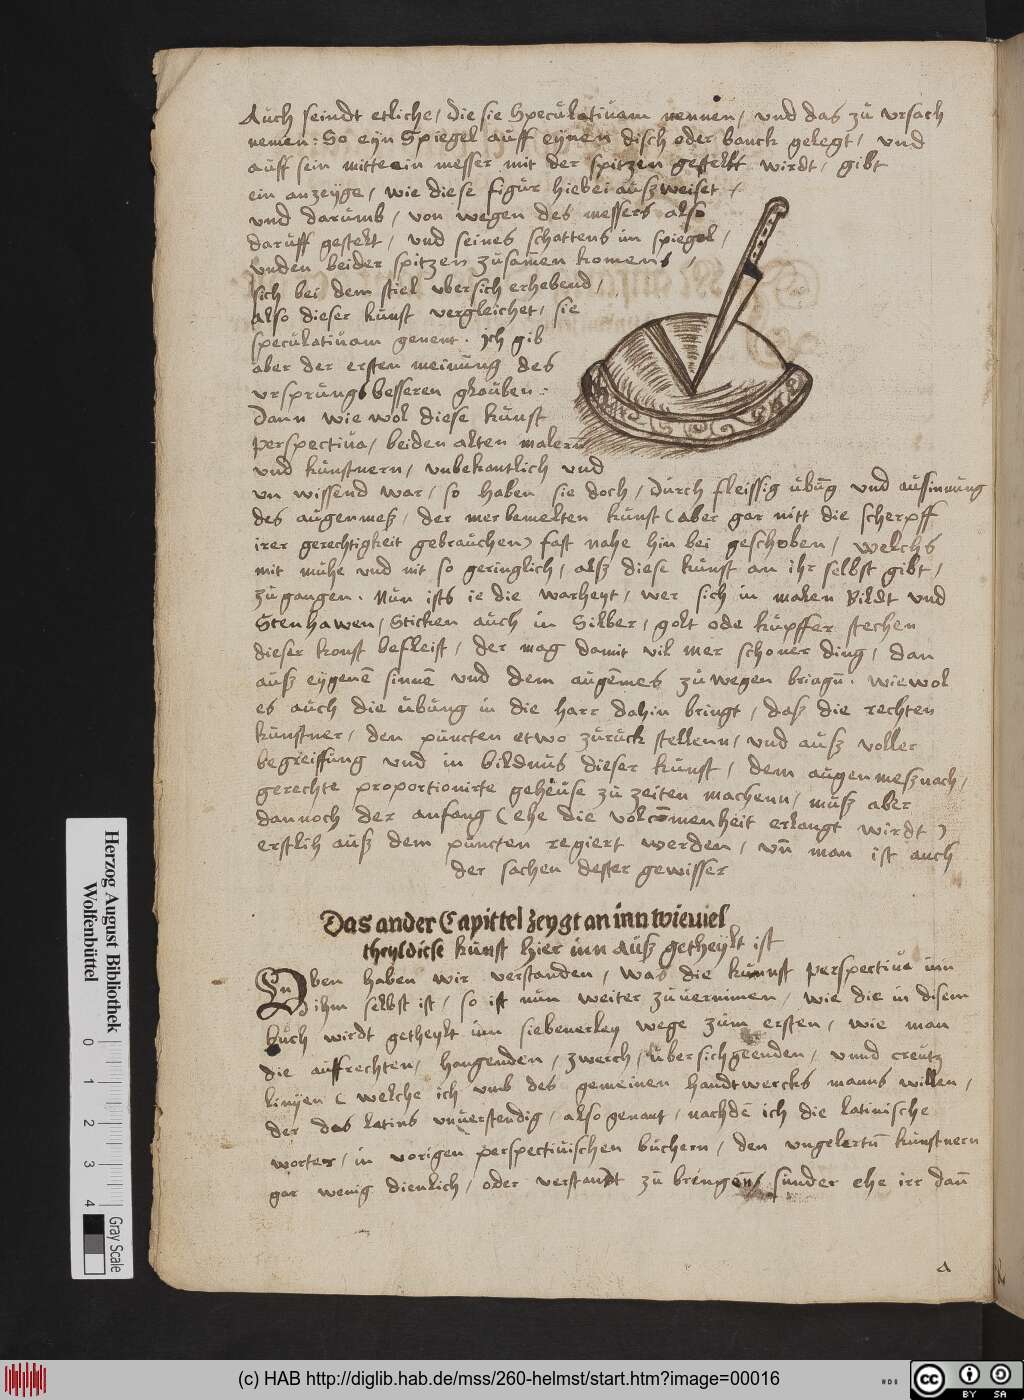 Auch seindt etliche, die sie Speculatiuam nennen, vnd das zu vrsach
nemen: So eyn Spiegel auff eynen disch oder banck gelegt, vnd
auff sein mitte ein messer mit der spitzen gestelt wirdt, gibt
ein anzeyge, wie diese figur hiebei außweiset,
vnd darumb, von wegen des messers also
daruff gestelt, vnd seines schattens im spiegel,
vnden beider spitzen zusamen komens,
sich bei dem stiel vbersich erhebend,
Also dieser kunst vergleichet, sie
speculatiuam genent. Ich gib
aber der ersten meinung des
vrsprungs besseren glauben:
Dann wie wol diese kunst
perspectiua, bei den alten malern
vnd kunstnern, vnbekantlich vnd
vn wissend war, so haben sie doch, durch fleissig übūg vnd aussinnung
des augenmeß, der mer bemelten kunst (aber gar nitt die scherpff
irer gerechtigkeit gebrauchen) fast nahe hin bei geschoben, welchs
mit mühe vnd nit so geringlich, alß diese kunst an ihr selbst gibt,
zugangen. Nun ists ie die warheyt, wer sich in malen Bildt vnd
Stenhawen, Sticken auch in Silber, golt ode kupffer stechen
dieser konst befleist, der mag damit vil mer schoner ding, dan
auß eygenē sinnē vnd dem augēmes zu wegen bringū. wiewol
es auch die ubung in die harr dahin bringt, daß die rechten
kunstner, den puncten etwo zuruck stellenn, vnd auß voller
begreiffung vnd in bildnus dieser kunst, dem augenmeß nach,
gerechte proportionirte geheuse zu zeiten machenn, muß aber
dannoch der anfang (ehe die volcōmenheit erlangt wirdt)
erstlih auß dem puncten regiert werden, vn̄ man ist auch
der sachen dester gewisser
Das ander Capittel zeygt an inn wieuiel
theyl diese kunst hier inn auß getheylt ist
Oben haben wir verstanden, was die kunnst perspectiua inn
ihm selbst ist, so ist nun weiter zuuernimen, wie die in disem
buch wirdt getheylt inn siebenerley wege zum ersten, wie man
die auffrechten, hangenden, zwerch, übersichgeenden, vnnd creutz
linyen (welche ich vmb des gemeinen handtwercks manns willen,
der des latins vnuerstendig, also genant, nachdē ich die latinische
worter, in vorigen perspectiuischen buchern, den vngelertū kunstnern
gar wenig dienlich, oder verstandt zu brengen, sunder ehe irr dañ
A
Herzog August Bibliothek
Wolfenbüttel
0 1 2 3 4
Gray Scale
(c) HAB http://diglib.hab.de/mss/260-helmst/start.htm?image=00016
HAB
cc
BY SA